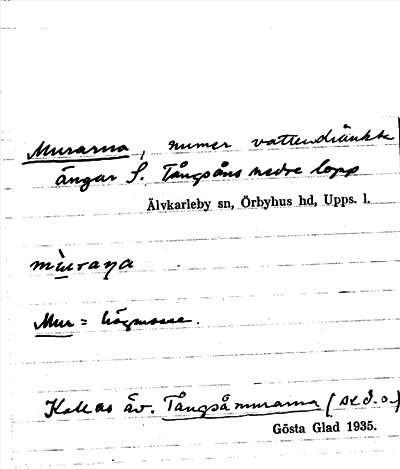 Murarna, numer vattendränkta
ängar S. Tångsåns nedre lopp
Älvkarleby sn, Örbyhus hd, Upps. l.
mùraṇa
Mur = högmosse.
Kallas äv. Tångsåmurarna (se d. o.)
Gösta Glad 1935.